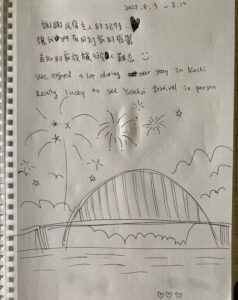 2023.8.9 - 8.10
謝謝民宿主人的招待
讓我們有回到家的感覺
真的好
難忘 :)
We enjoyed a lot during our stay in Kochi
Really lucky to see Yosakoi festival in person